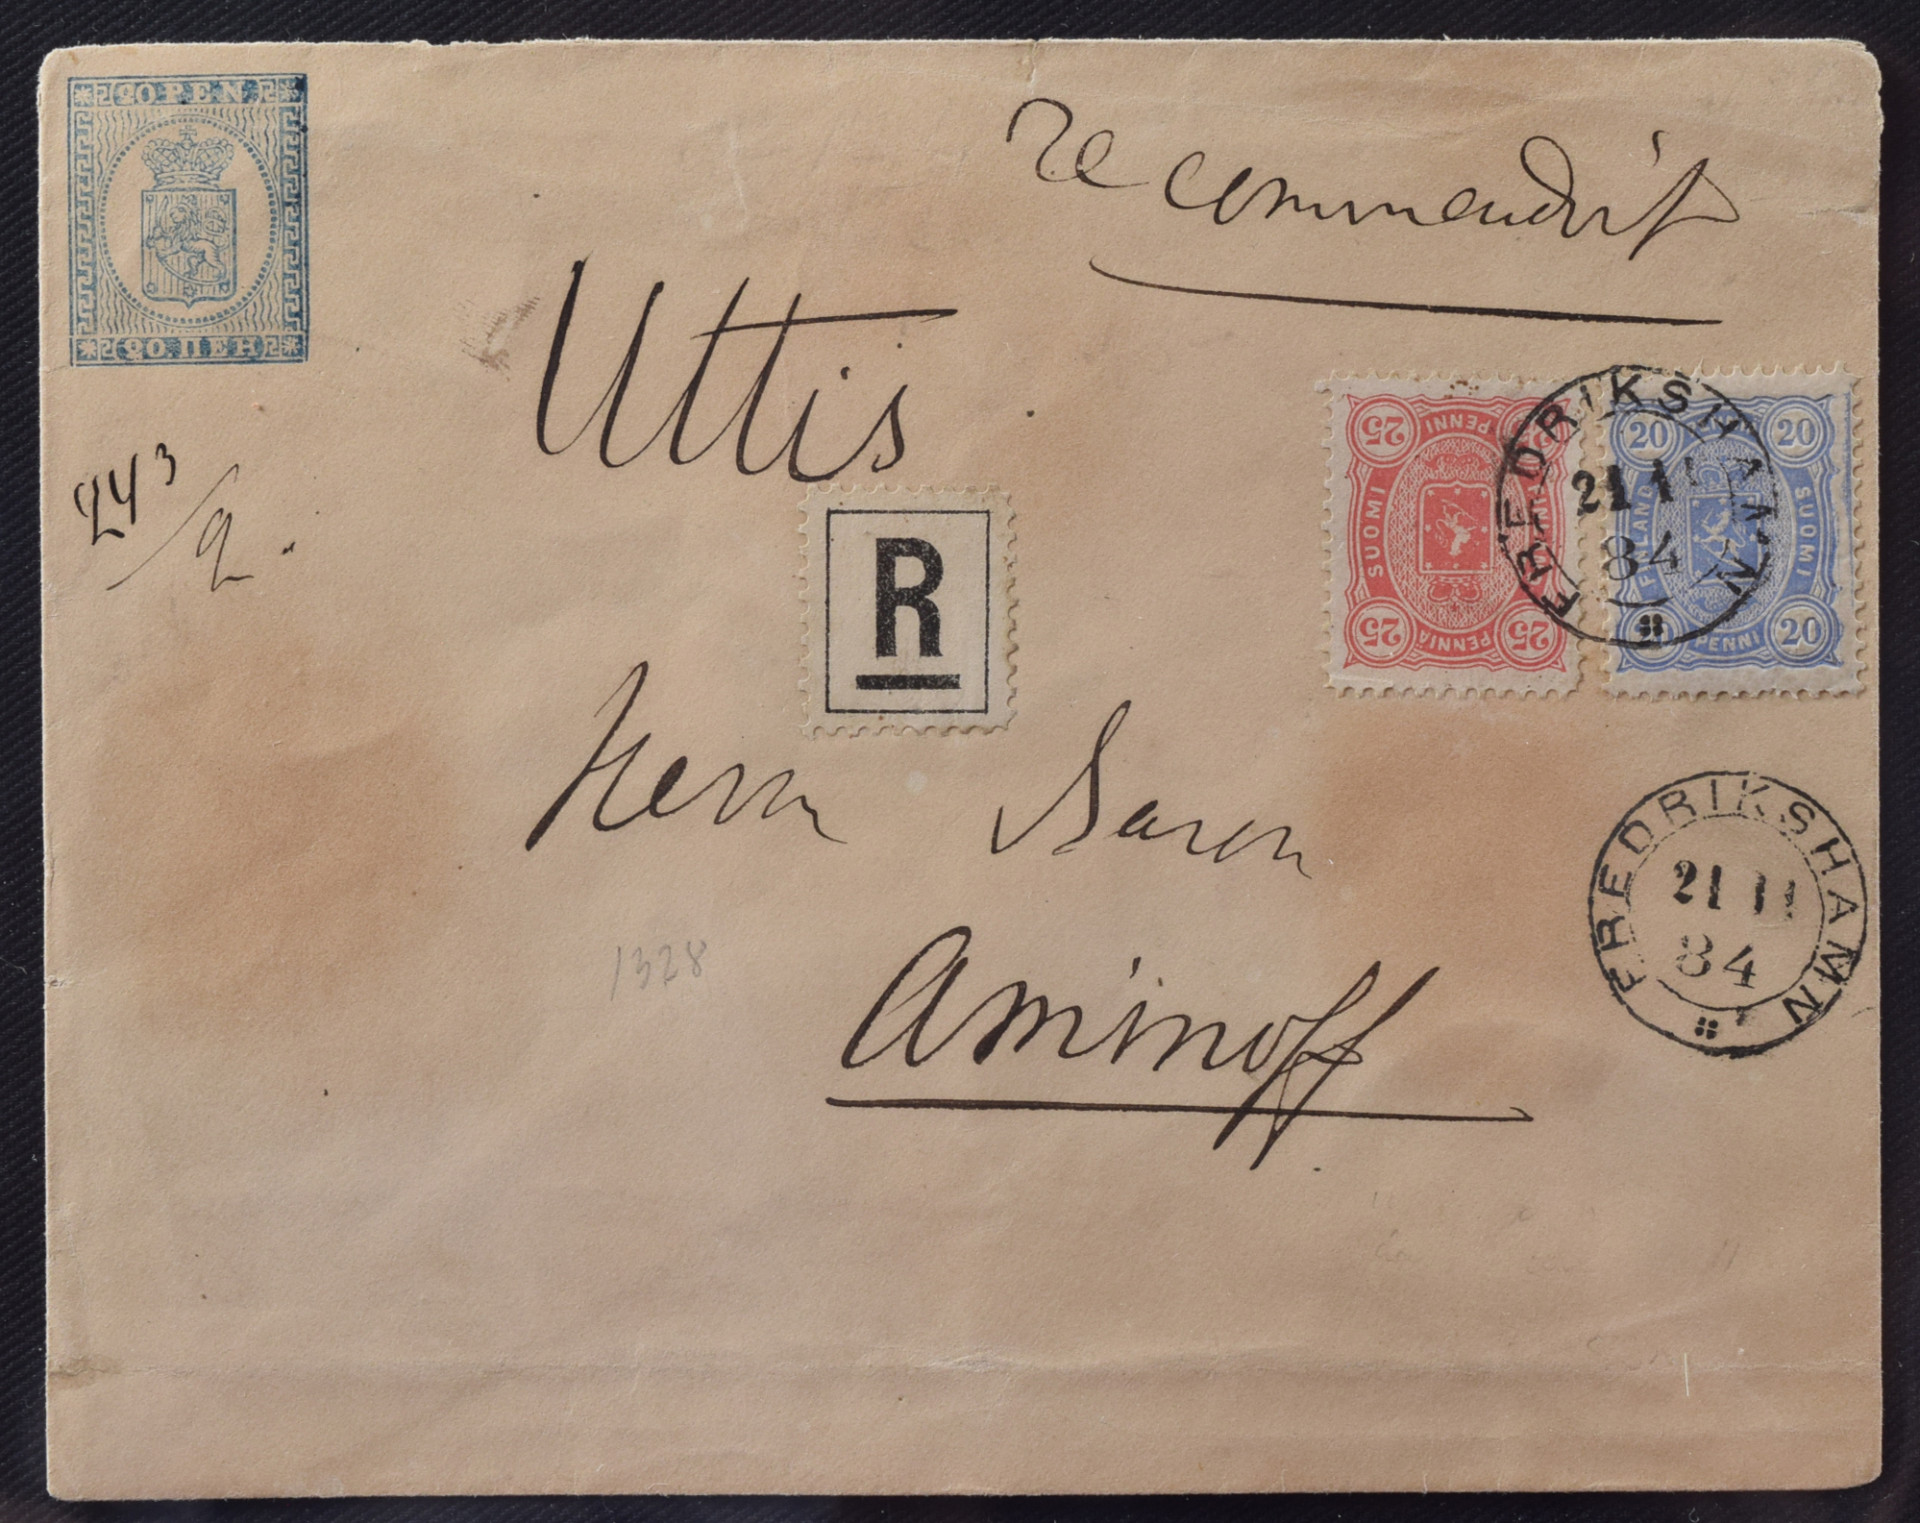 20.PEN.
20.ПЕН
recommendirt
Uttis
243
/2.
R
25 PENNI 25
SUOMI
FINLAND
25 PENNIÄ 25
20 20
FINLAND
SUOMI
20 PENNI 20
FREDRIKSHAMN
21 11
84
Herrn Baron
Aminoff
1328
FREDRIKSHAMN
21 11
84